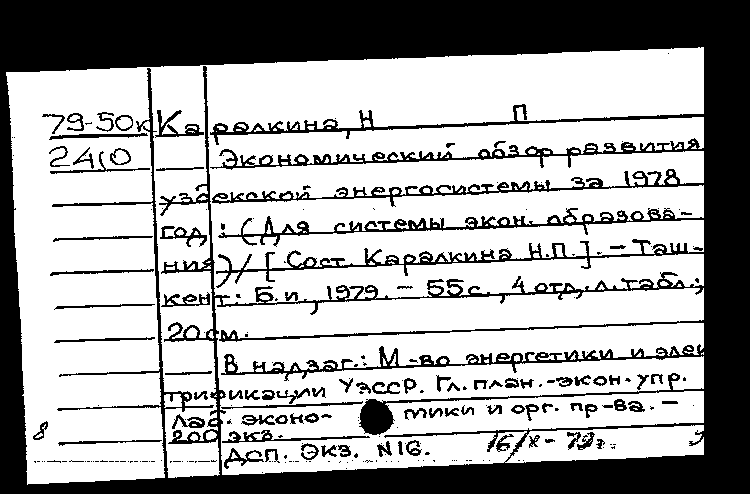 79-50к Каралкина, Н П
24(0 Экономический обзор развития
узбекской энергосистемы за 1978
год : (Для системы экон. образова-
ния) / [ Сост. Каралкина Н.П. ]. – Таш-
кент: Б.и., 1979. – 55 с., 4 отд. л. табл.;
20 см.
В надзаг.: М-во энергетики и элек
трификации УзССР. Гл. план.-экон. упр.
Лаб. эконо- мики и орг. пр-ва. –
8 200 экз.
Дсп. Экз. N16. 16/X-79г.